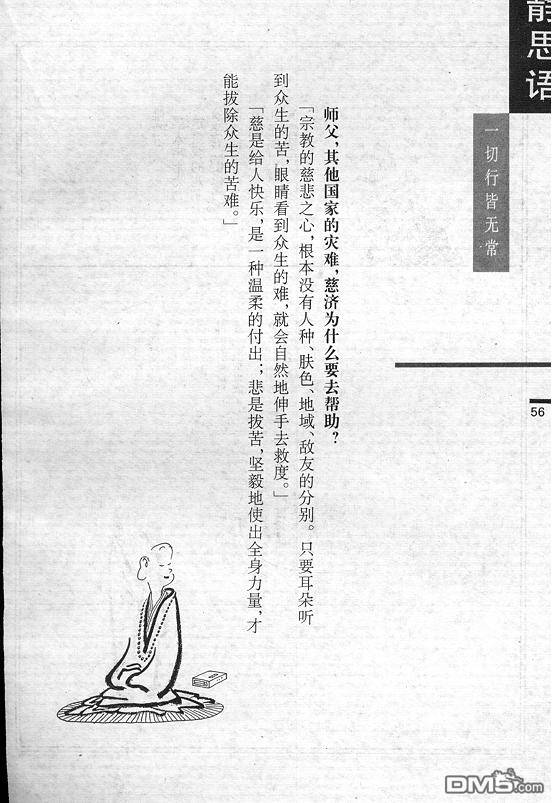 静思语
一切行皆无常
56
师父，其他国家的灾难，慈济为什么要去帮助？
「宗教的慈悲之心，根本没有人种、肤色、地域、敌友的分别。只要耳朵听
到众生的苦，眼睛看到众生的难，就会自然地伸手去救度。」
「慈是给人快乐，是一种温柔的付出；悲是拔苦，坚毅地使出全身力量，才
能拔除众生的苦难。」
DM5.com